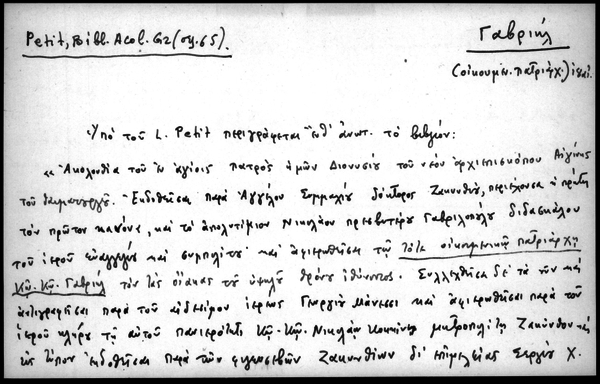 Petit, Bibl. Acol. 62 (σγ. 65).
Γαβριήλ
(οἰκουμεν. πατριάρχ.)
Ὑπὸ τοῦ L. Petit περιγράφεται ἐνθ' ἀνωτ. τὸ βιβλίον:
«Ἀκολουθία τοῦ ἐν ἁγίοις πατρὸς ἡμῶν Διονυσίου τοῦ νέου ἀρχιεπισκόπου Αἰγίνης
τοῦ θαυματουργοῦ. Ἐκδοθεῖσα παρὰ Ἀγγέλου Συμμαχίου δόκτορος Ζακυνθίου, περιέχουσα
τὸν πρῶτον κανόνα, καὶ τὸ ἀπολυτίκιον Νικολάου πρεσβυτέρου Γαβριλοπούλου διδασκάλου
τοῦ ἱεροῦ εὐαγγελίου καὶ συμπολίτου καὶ ἀφιερωθεῖσα τῷ οἰκουμενικῷ πατριάρχῃ
Κῷ. Κῷ. Γαβριὴλ τὸν τοὺς οἴακας τοῦ ὑψηλοῦ θρόνου ἰθύνοντος. Συλλεχθεῖσα δὲ τὰ νῦν καὶ
καλιγραφεῖσα παρὰ τοῦ αἰδεσίμου ἱερέως Γεωργίου Μάνεση καὶ ἀφιερωθεῖσα παρὰ τοῦ
ἱεροῦ κλήρου τῷ αὐτοῦ πανιερότητι Κῷ. Κῷ. Νικολάῳ Κοκκίνῳ μητροπολίτῃ Ζακύνθου καὶ
εἰς τύπον ἐκδοθεῖσα παρὰ τῶν φιλευσεβῶν Ζακυνθίων δι' ἐπιμελείας Σεργίου Χ.